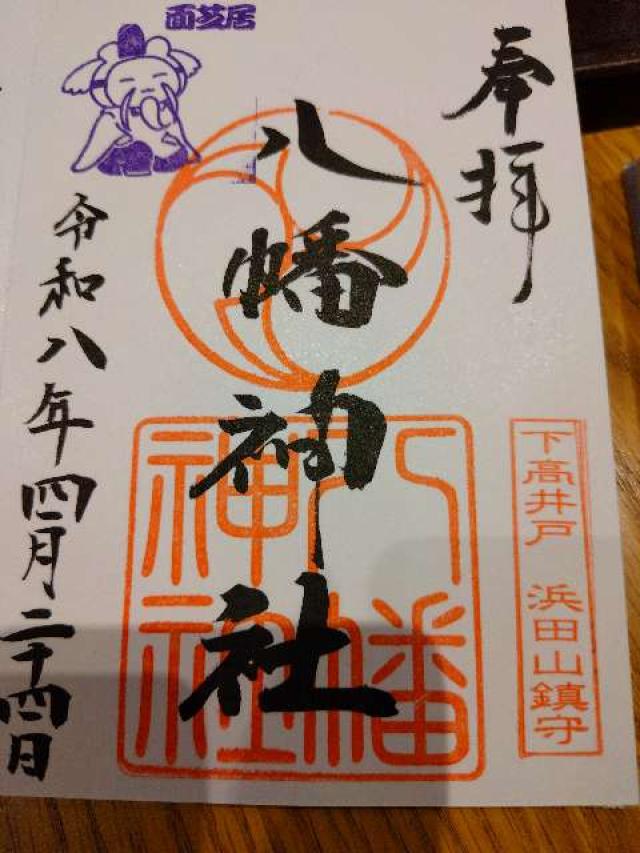 奉拝
下高井戸 浜田山鎮守
八幡神社
八幡
神社
面芝居
令和八年四月二十四日